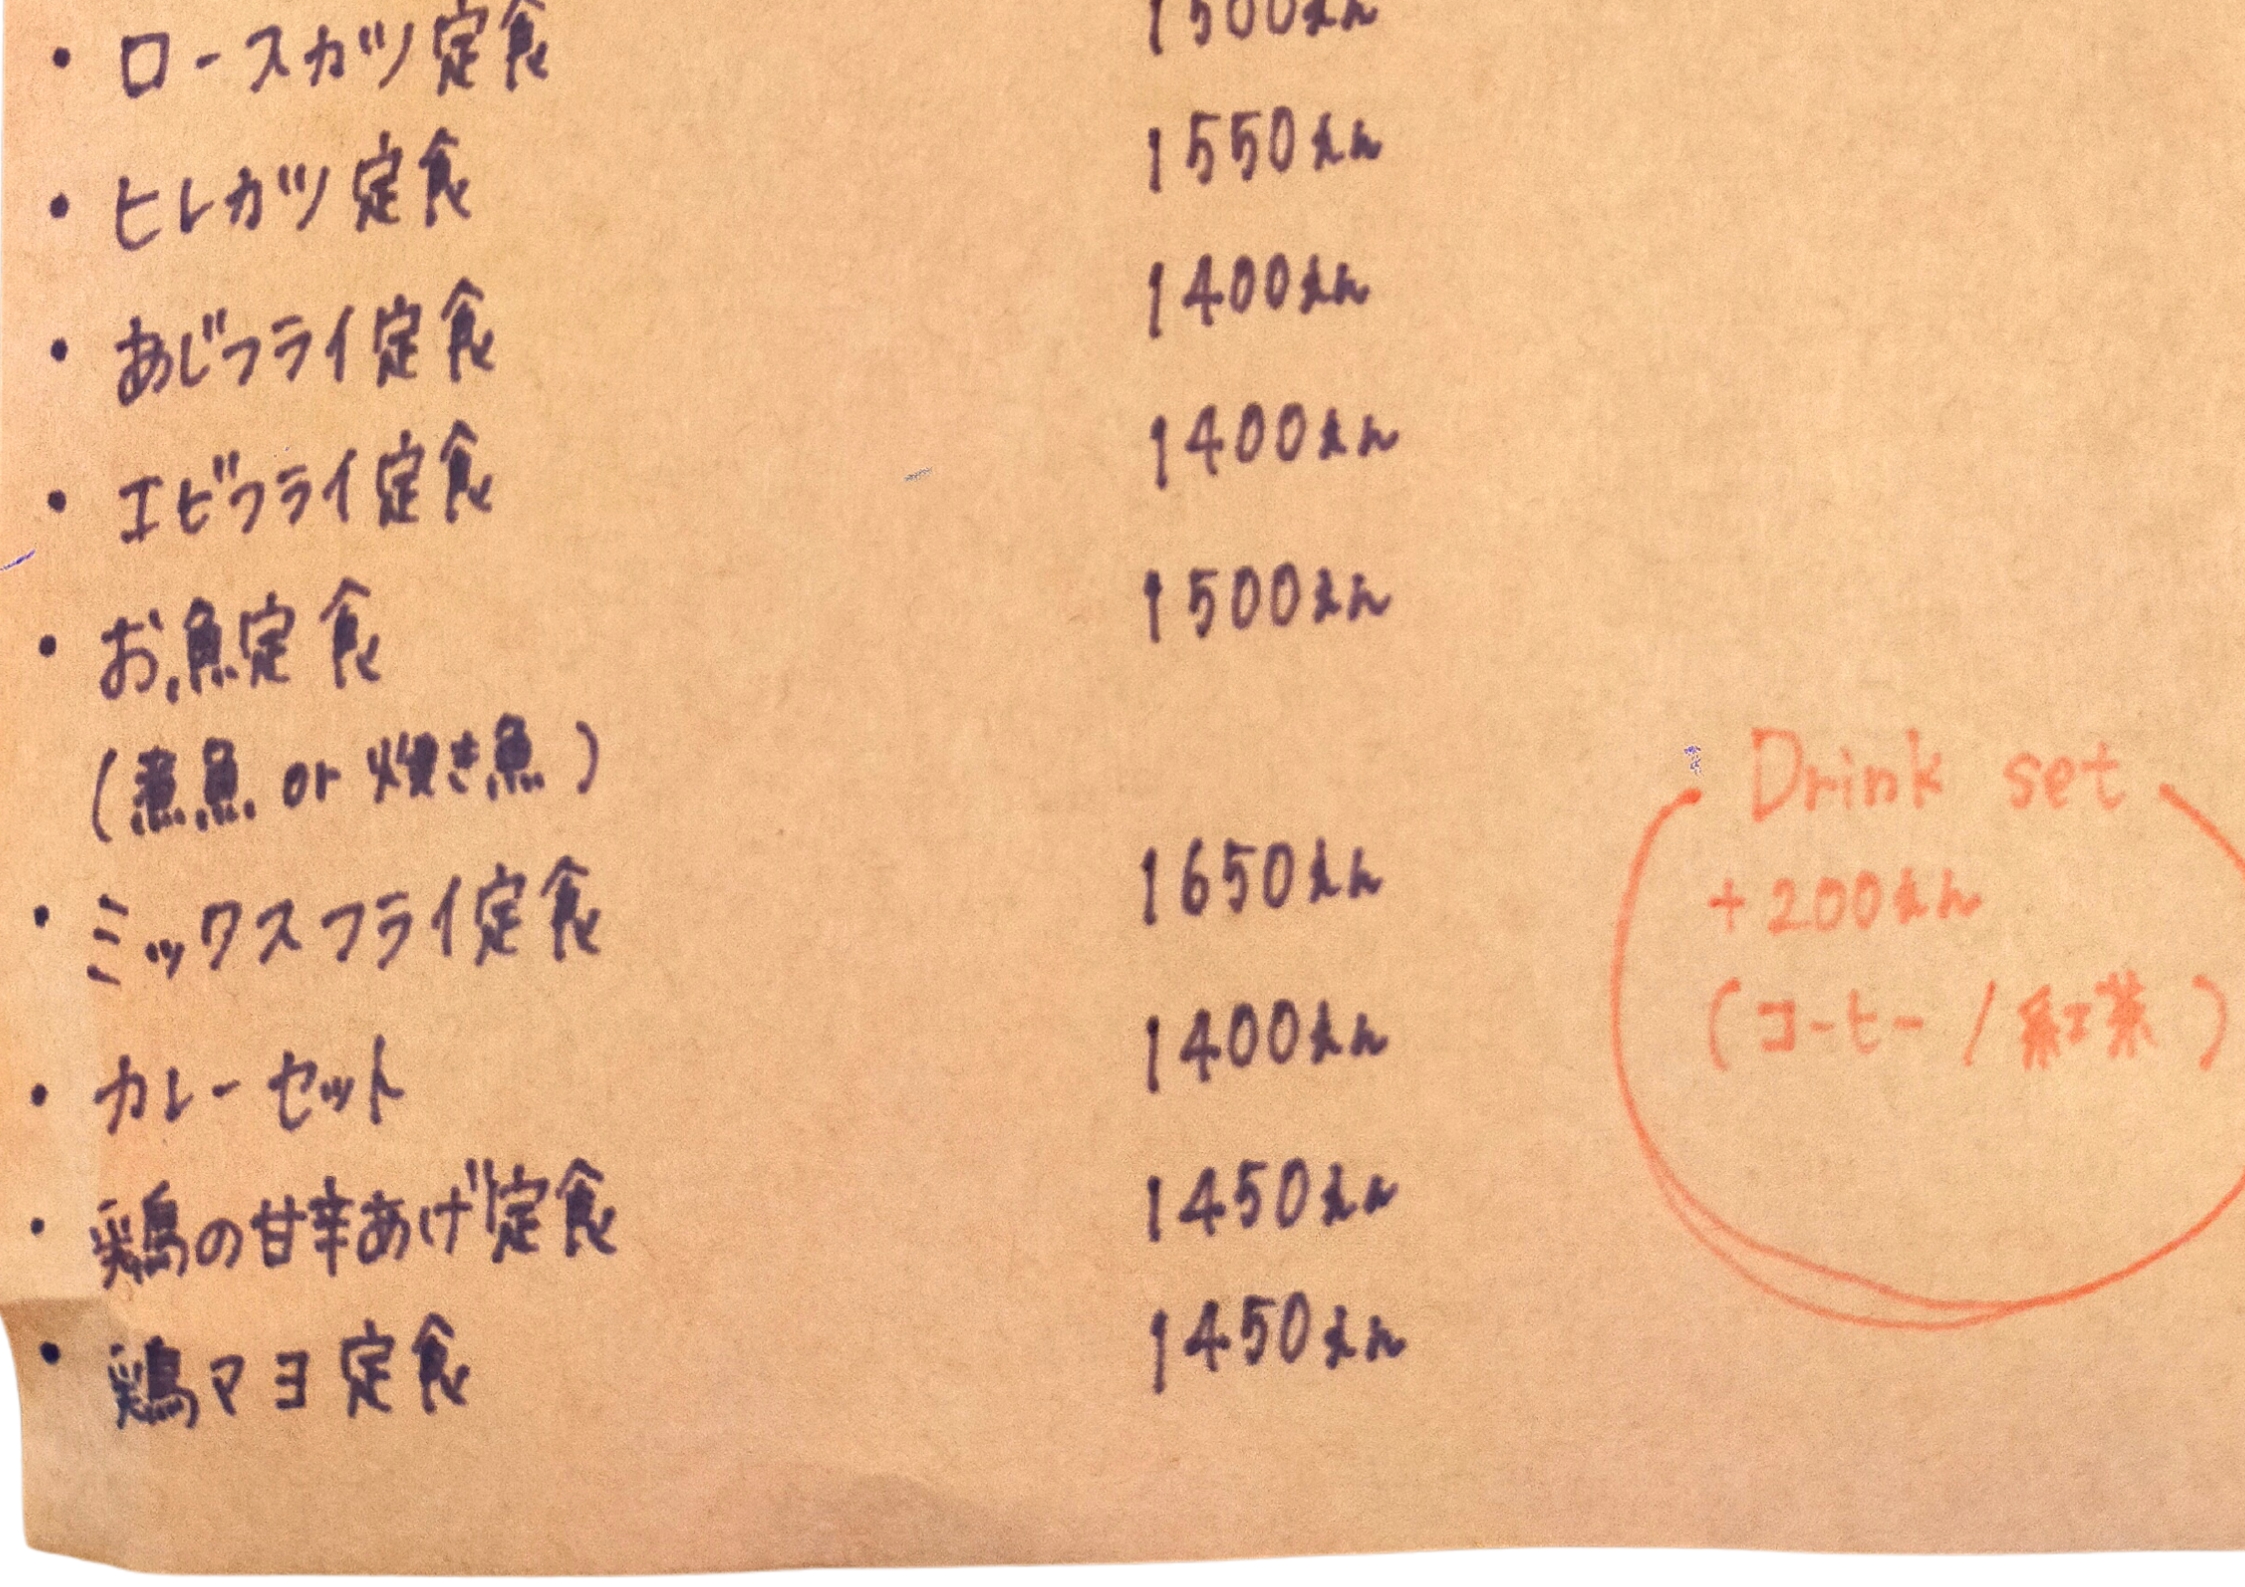 ・ロースカツ定食 1500えん
・ヒレカツ定食 1550えん
・あじフライ定食 1400えん
・エビフライ定食 1400えん
・お魚定食 1500えん
(煮魚 or 焼き魚)
・ミックスフライ定食 1650えん
・カレーセット 1400えん
・鶏の甘辛あげ定食 1450えん
・鶏マヨ定食 1450えん
Drink set
+200えん
(コーヒー / 紅茶)